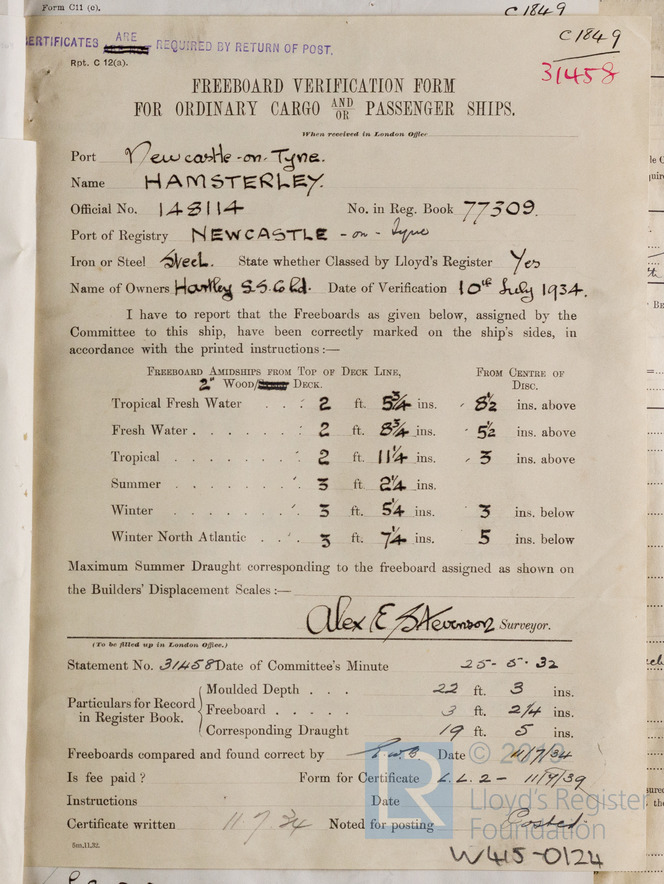 Form C11 (c).
C1849
CERTIFICATES ARE REQUIRED BY RETURN OF POST.
C1849
Rpt. C 12(a).
31458
FREEBOARD VERIFICATION FORM
FOR ORDINARY CARGO AND/OR PASSENGER SHIPS.
When received in London Office
Port Newcastle-on-Tyne.
Name HAMSTERLEY.
Official No. 148114 No. in Reg. Book 77309.
Port of Registry NEWCASTLE -on-Tyne
Iron or Steel Steel. State whether Classed by Lloyd's Register Yes
Name of Owners Hartley S.S. Co Ld. Date of Verification 10th July 1934.
I have to report that the Freeboards as given below, assigned by the
Committee to this ship, have been correctly marked on the ship's sides, in
accordance with the printed instructions:—
Freeboard Amidships from Top of Deck Line, From Centre of
2" Wood/ Deck. Disc.
Tropical Fresh Water 2 ft. 5¾ ins. 8½ ins. above
Fresh Water 2 ft. 8¾ ins. 5½ ins. above
Tropical 2 ft. 11¼ ins. 3 ins. above
Summer 3 ft. 2¼ ins.
Winter 3 ft. 5¼ ins. 3 ins. below
Winter North Atlantic 3 ft. 7¼ ins. 5 ins. below
Maximum Summer Draught corresponding to the freeboard assigned as shown on
the Builders' Displacement Scales:—
Alex E Stevenson Surveyor.
(To be filled up in London Office.)
Statement No. 31458 Date of Committee's Minute 25-5-32
Particulars for Record in Register Book.
Moulded Depth . . . 22 ft. 3 ins.
Freeboard . . . . . 3 ft. 2¼ ins.
Corresponding Draught 19 ft. 5 ins.
Freeboards compared and found correct by Date 11/7/34
Is fee paid? Form for Certificate L.L.2-
Instructions Date
Certificate written 11.7.34 Noted for posting Posted.
5m,11,32.
LR
© 2019
Lloyd's Register
Foundation
W415-0124